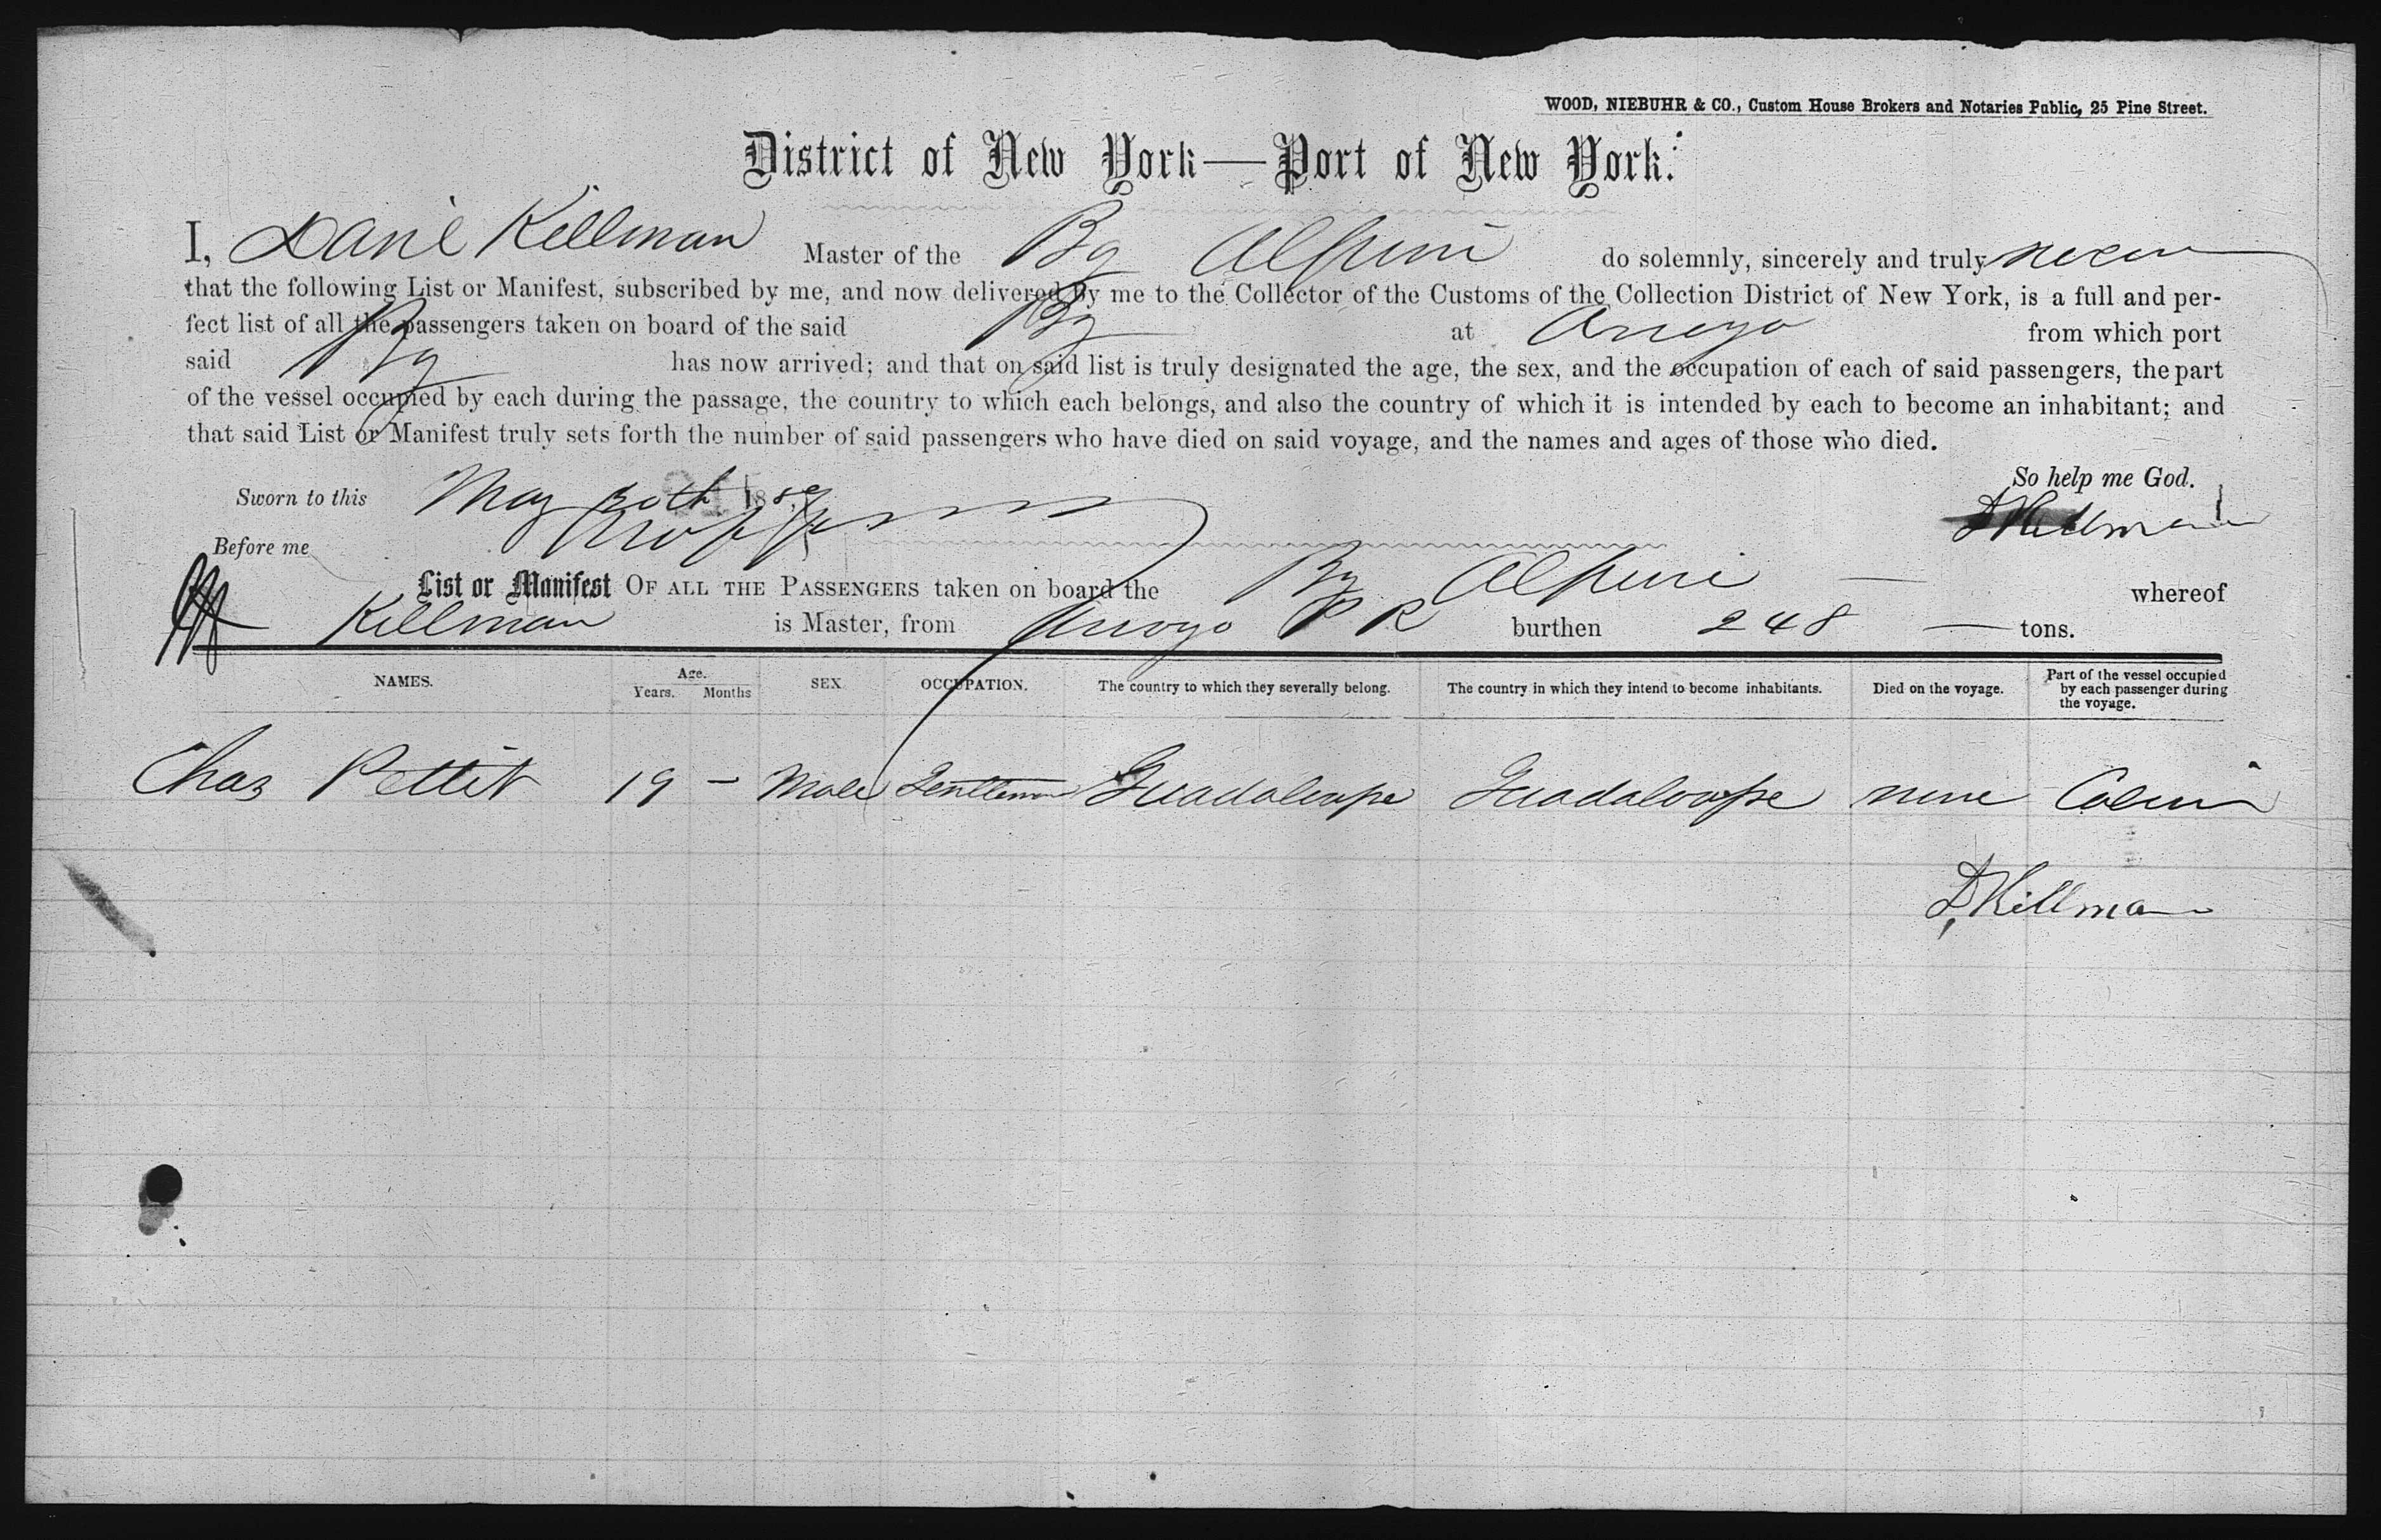 WOOD, NIEBUHR & CO., Custom House Brokers and Notaries Public, 25 Pine Street.
District of New York—Port of New York.
I, Danl Killman Master of the Bg Alpini do solemnly, sincerely and truly swear
that the following List or Manifest, subscribed by me, and now delivered by me to the Collector of the Customs of the Collection District of New York, is a full and per-
fect list of all the passengers taken on board of the said Bg at Arroyo from which port
said Bg has now arrived; and that on said list is truly designated the age, the sex, and the occupation of each of said passengers, the part
of the vessel occupied by each during the passage, the country to which each belongs, and also the country of which it is intended by each to become an inhabitant; and
that said List or Manifest truly sets forth the number of said passengers who have died on said voyage, and the names and ages of those who died.
So help me God.
Sworn to this May 20th 188
D Killman
Before me
List or Manifest OF ALL THE PASSENGERS taken on board the Bg Alpini whereof
Killman is Master, from Arroyo P R burthen 248 — tons.
NAMES. Age. Years. Months SEX OCCUPATION. The country to which they severally belong. The country in which they intend to become inhabitants. Died on the voyage. Part of the vessel occupied by each passenger during the voyage.
Chas Pettit 19 – Male Gentleman Guadaloupe Guadaloupe none Cabin
D Killman